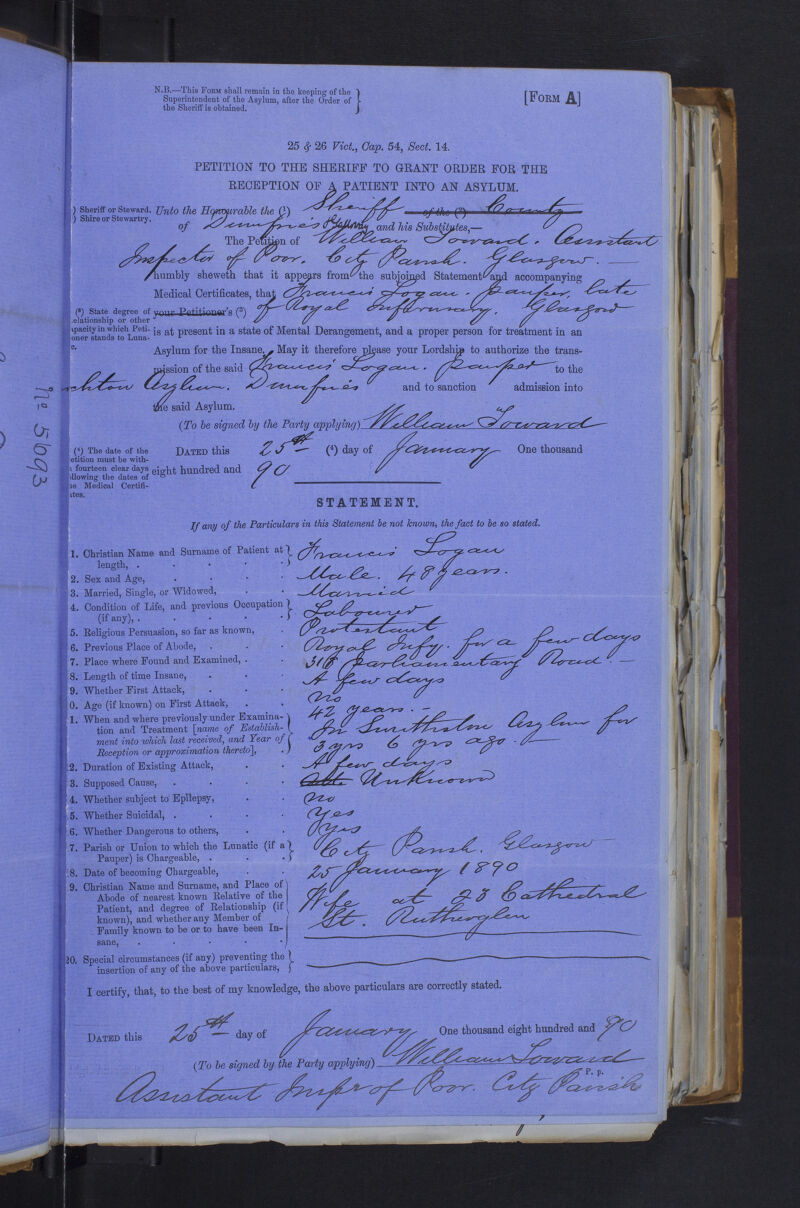 N.B.—This Form shall remain in the keeping of the
Superintendent of the Asylum, after the Order of
the Sheriff is obtained.
[Form A]
25 & 26 Vict., Cap. 54, Sect. 14.
PETITION TO THE SHERIFF TO GRANT ORDER FOR THE
RECEPTION OF A PATIENT INTO AN ASYLUM.
) Sheriff or Steward.
) Shire or Stewartry.
Unto the Honourable the (¹) Sheriff of the (²) County
of Dumfries & Galloway and his Substitutes,—
The Petition of William Toward. Assistant
Inspector of Poor. City Parish. Glasgow.—
humbly sheweth that it appears from the subjoined Statement and accompanying
Medical Certificates, that Francis Logan. pauper, late
(³) State degree of
elationship or other
apacity in which Peti-
oner stands to Luna-
c.
your Petitioner's (³) of Royal Infirmary. Glasgow
is at present in a state of Mental Derangement, and a proper person for treatment in an
Asylum for the Insane, May it therefore please your Lordship to authorize the trans-
mission of the said Francis Logan. pauper to the
chton Asylum. Dumfries and to sanction admission into
the said Asylum.
(To be signed by the Party applying) William Toward
(⁴) The date of the
etition must be with-
fourteen clear days
llowing the dates of
e Medical Certifi-
ates.
Dated this 25th (⁴) day of January One thousand
eight hundred and 90
No 5693
STATEMENT.
If any of the Particulars in this Statement be not known, the fact to be so stated.
1. Christian Name and Surname of Patient at length, . Francis Logan
2. Sex and Age, Male. 48 years.
3. Married, Single, or Widowed, Married
4. Condition of Life, and previous Occupation (if any), . Labourer
5. Religious Persuasion, so far as known, Protestant
6. Previous Place of Abode, . Royal Infy. for a few days
7. Place where Found and Examined, . 318 Parliamentary Road.—
8. Length of time Insane, A few days
9. Whether First Attack, No
0. Age (if known) on First Attack, 42 years.—
1. When and where previously under Examina-
tion and Treatment [name of Establish-
ment into which last received, and Year of
Reception or approximation thereto],
In Smithston Asylum for
3 yrs 6 yrs ago.—
2. Duration of Existing Attack, A few days
3. Supposed Cause, . Unknown
4. Whether subject to Epilepsy, No
5. Whether Suicidal, . Yes
6. Whether Dangerous to others, Yes
7. Parish or Union to which the Lunatic (if a
Pauper) is Chargeable, . City Parish. Glasgow
8. Date of becoming Chargeable, 25 January 1890
9. Christian Name and Surname, and Place of
Abode of nearest known Relative of the
Patient, and degree of Relationship (if
known), and whether any Member of
Family known to be or to have been In-
sane,
Wife at 23 Cathedral
St. Rutherglen
20. Special circumstances (if any) preventing the
insertion of any of the above particulars,
I certify, that, to the best of my knowledge, the above particulars are correctly stated.
Dated this 25th day of January One thousand eight hundred and 90
(To be signed by the Party applying) William Toward
P. p.
Assistant Inspr of Poor. City Parish